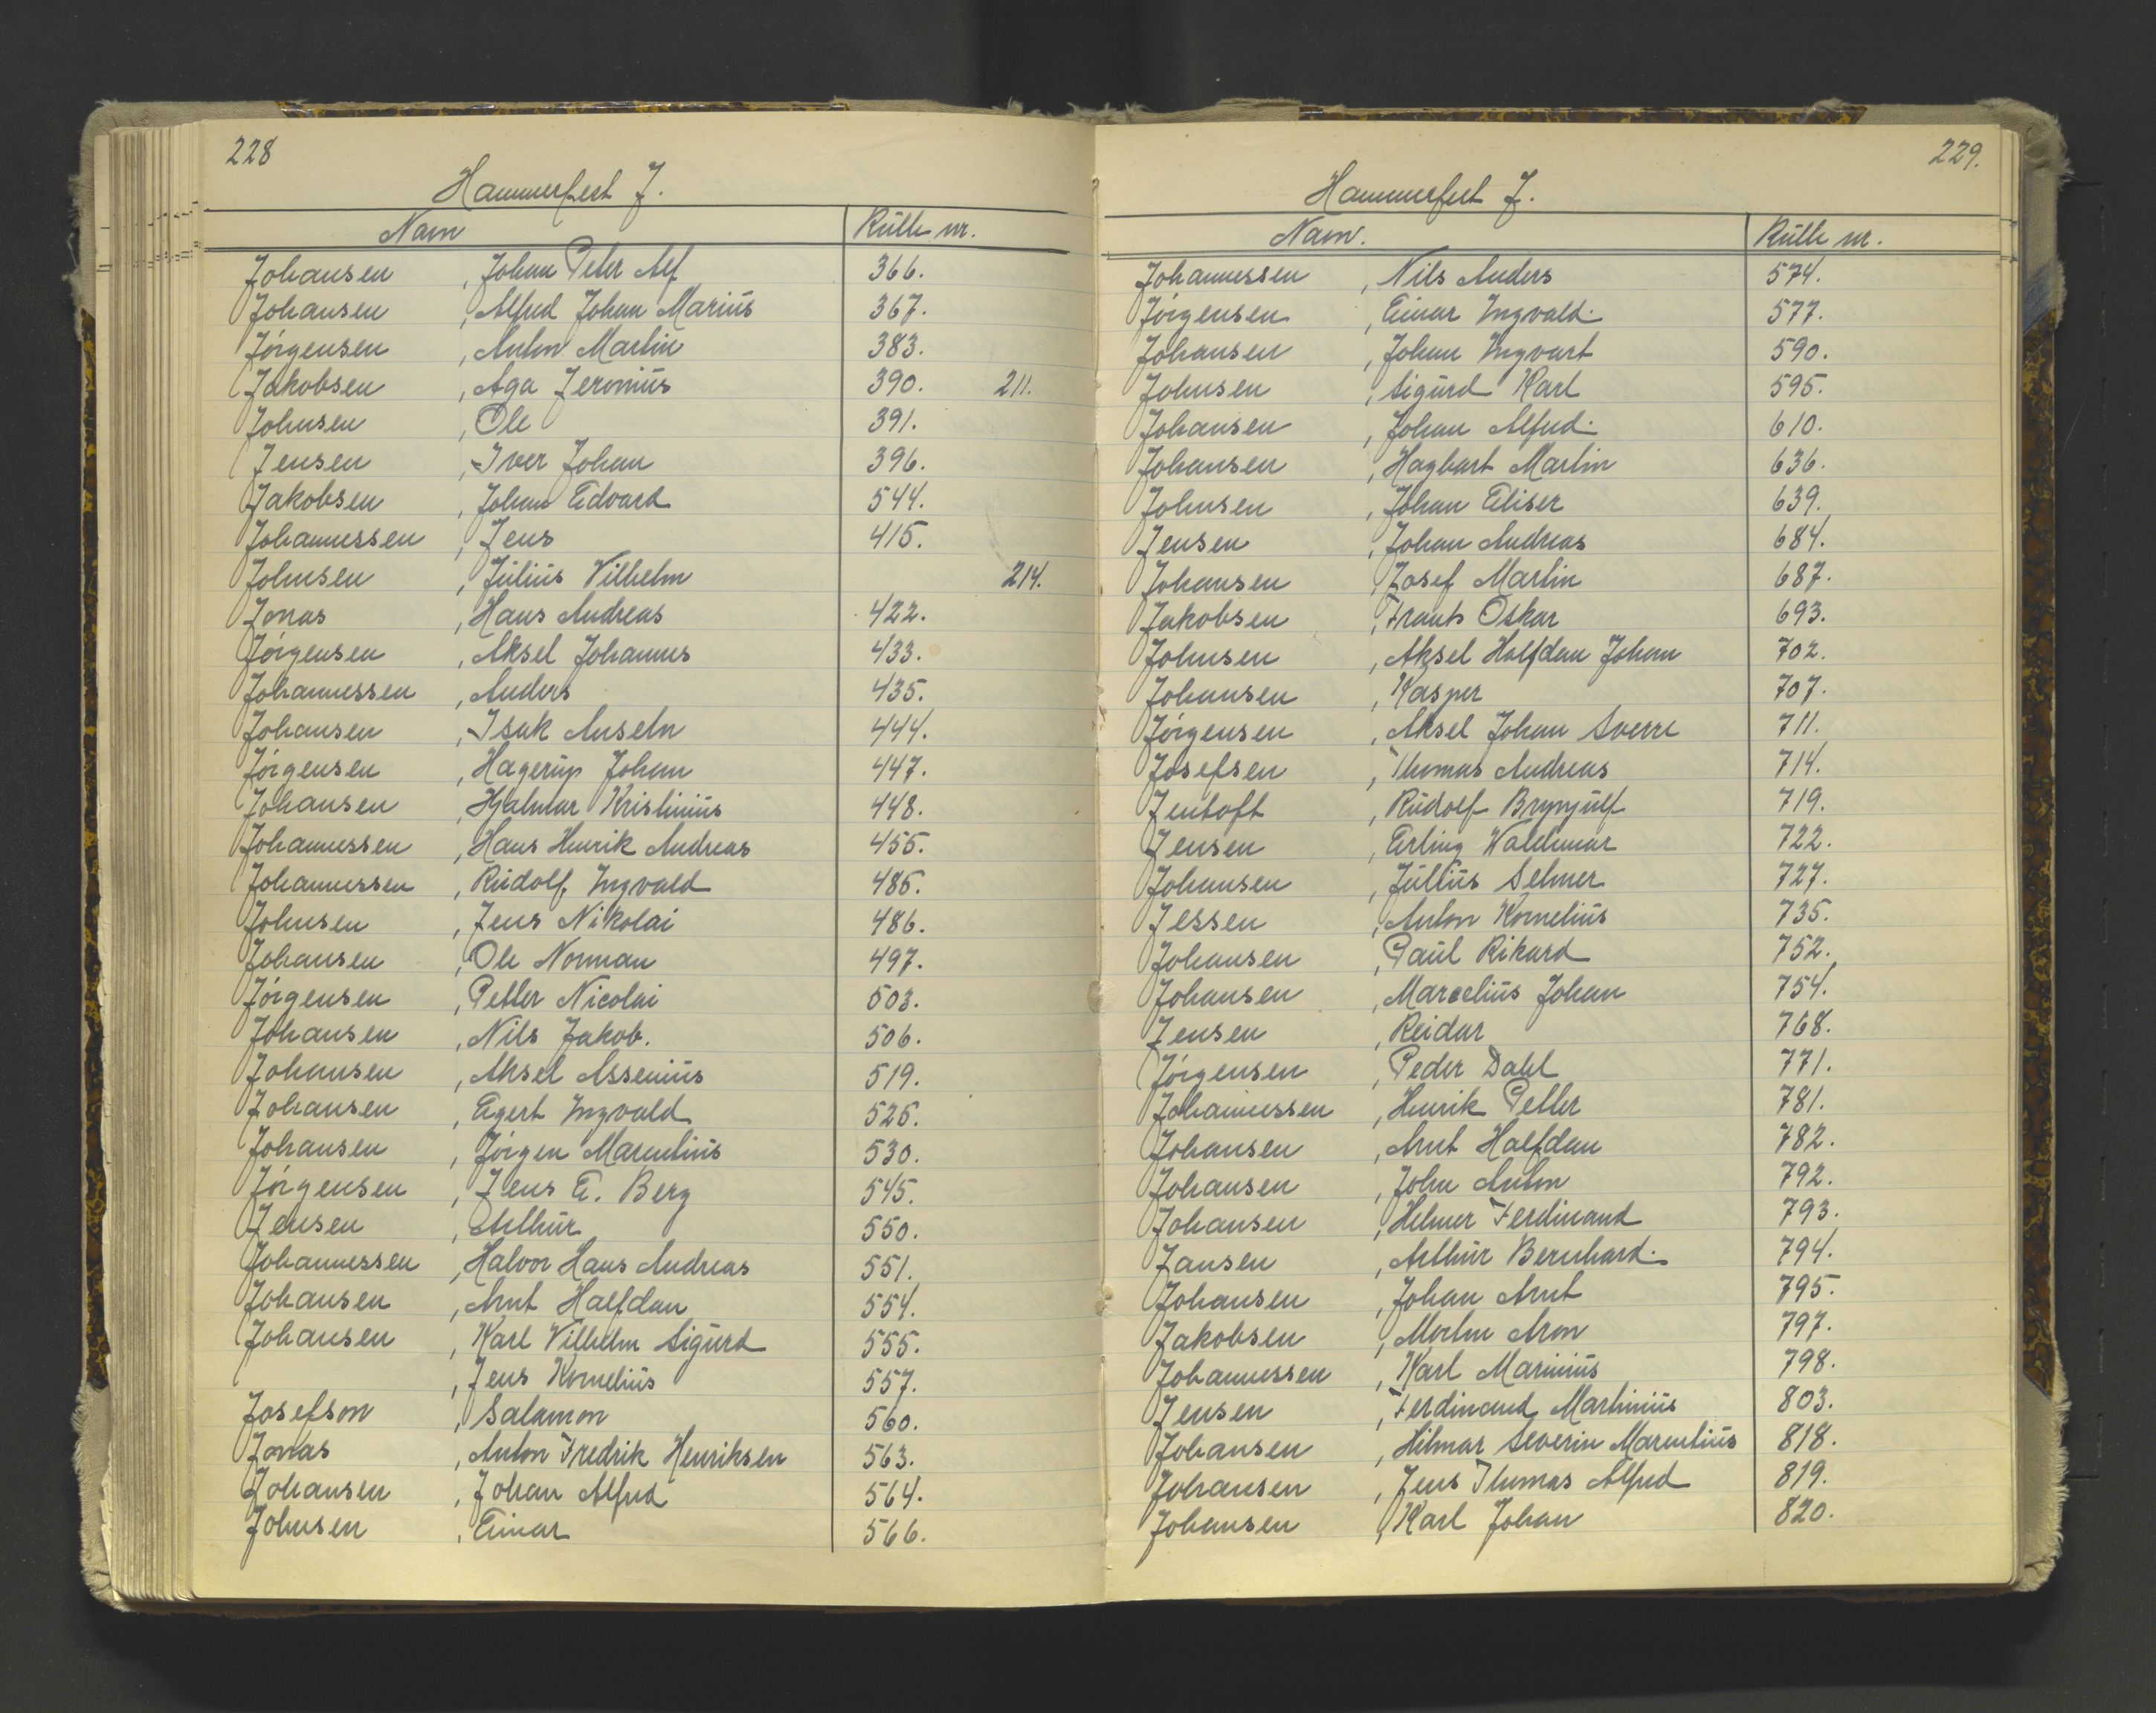 228
Hammerfest J.
Navn Rulle nr.
Johansen, Johan Peter Alf 366.
Johansen, Alfred Johan Marius 367.
Jörgensen, Anton Martin 383.
Jakobsen, Aga Jeronius 390. 211.
Johnsen, Ole 391.
Jensen, Iver Johan 396.
Jakobsen, Johan Edvard 544.
Johannessen, Jens 415.
Johnsen, Julius Vilhelm 214.
Jonas, Hans Andreas 422.
Jörgensen, Aksel Johannes 433.
Johannessen, Anders 435.
Johansen, Isak Anselm 444.
Jörgensen, Hagerup Johan 447.
Johansen, Hjalmar Kristinius 448.
Johannessen, Hans Henrik Andreas 455.
Johannessen, Rudolf Ingvald 485.
Johnsen, Jens Nikolai 486.
Johansen, Ole Norman 497.
Jörgensen, Petter Nicolai 503.
Johansen, Nils Jakob. 506.
Johansen, Aksel Assenius 519.
Johansen, Egert Ingvald 525.
Johansen, Jörgen Marentius 530.
Jörgensen, Jens E. Berg 545.
Jensen, Arthur 550.
Johannessen, Halvor Hans Andreas 551.
Johansen, Arnt Halfdan 554.
Johansen, Karl Vilhelm Sigurd 555.
, Jens Kornelius 557.
Josefson, Salamon 560.
Jonas, Anton Fredrik Henriksen 563.
Johansen, Johan Alfred 564.
Johnsen, Einar 566.
229.
Hammerfest J.
Navn. Rulle nr.
Johannessen, Nils Anders 574.
Jörgensen, Einar Ingvald. 577.
Johansen, Johan Ingvart 590.
Johnsen, Sigurd Karl 595.
Johansen, Johan Alfred. 610.
Johansen, Hagbart Martin 636.
Johnsen, Johan Eliser 639.
Jensen, Johan Andreas 684.
Johansen, Josef Martin 687.
Jakobsen, Frants Oskar 693.
Johnsen, Aksel Halfdan Johan 702.
Johansen, Kasper 707.
Jörgensen, Aksel Johan Sverre 711.
Josefsen, Thomas Andreas 714.
Jentoft, Rudolf Brynjulf 719.
Jensen, Erling Waldemar 722.
Johansen, Julius Selmer 727.
Jessen, Anton Kornelius 735.
Johansen, Paul Rikard 752.
Johansen, Marselius Johan 754.
Jensen, Reidar 768.
Jörgensen, Peder Dahl 771.
Johannessen, Henrik Petter 781.
Johansen, Arnt Halfdan 782.
Johansen, John Anton 792.
Johansen, Helmer Ferdinand 793.
Jansen, Arthur Bernhard. 794.
Johansen, Johan Arnt 795.
Jakobsen, Aron 797.
Johannessen, Karl Marinius 798.
Jensen, Ferdinand Martinius 803.
Johansen, Hilmar Severin Marentius 818.
Johansen, Jens Thomas Alfred 819.
Johansen, Karl Johan 820.